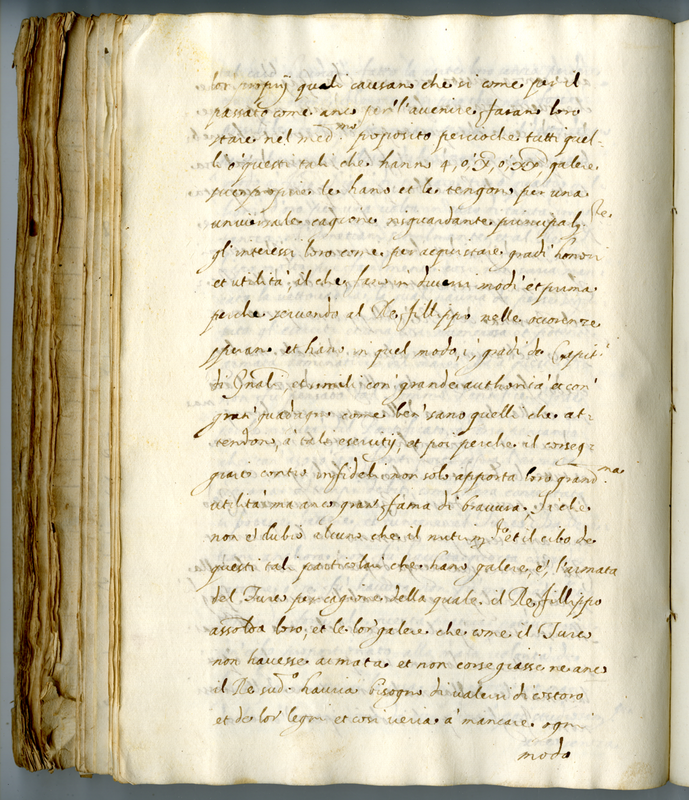 lor proprij quali causan che si come per il
passato come anco per l'avenire, faran loro
stare nel med.mo proposito percioche tutti quel-
li o questi tali che hanno 4, o, X, o, XX, galere
proprie le hano et le tengon per una
universale cagione risguardante principalte
gl'interessi loro come per acquistare gradi honori
et utilità, il che fan in diversi modi et prima
perche servendo al Re, fillippo nelle occorenze
speran et hano in quel modo, i, gradi de Capit.i
di Gnali et simili con grande authorita et con
gran guadagno come ben sano quelli che at-
tendono, à tali esercitij, et poi perche il conseg-
guito contro infideli non solo apporta loro grand.ma
utilità ma anco gran fama di bravura, Si che
non è dubio alcuno che il nutrim.to et il cibo de
questi tali particolari che hano galere, è, l'armata
del Turco per cagione della quale il Re, fillippo
assolda loro, et le lor galere che come il Turco
non havesse armata et non corseggiasse ne anco
il Re sud.o havria bisogno di valersi di costoro
et de lor legni et cosi verria à mancare ogni
modo